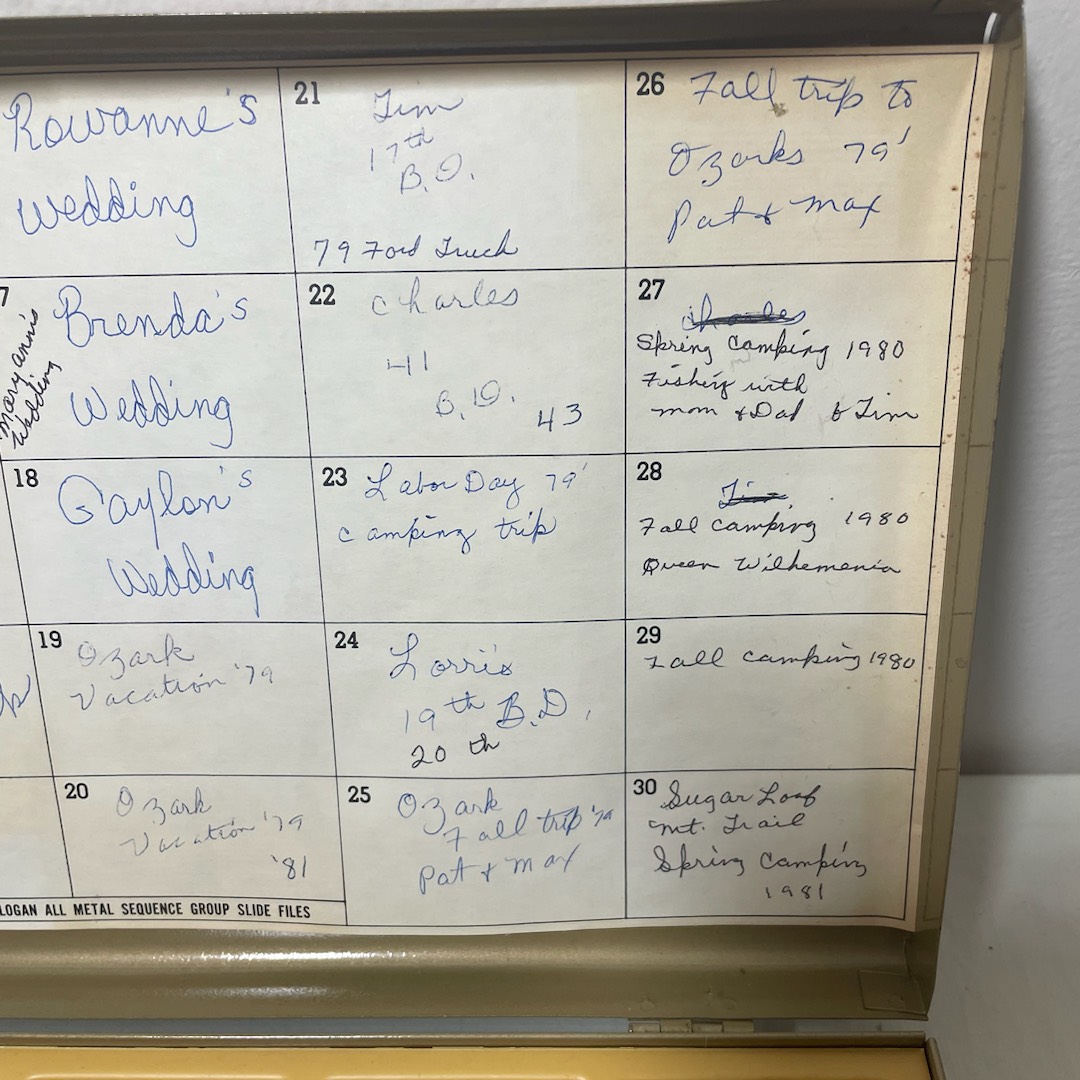 Rowanne's
Wedding
7
Mary ann's
Wedding
Brenda's
Wedding
18
Gaylon's
Wedding
19
Ozark
Vacation '79
20
Ozark
Vacation '79
'81
LOGAN ALL METAL SEQUENCE GROUP SLIDE FILES
21
Tim
17th
B.D.
79 Ford Truck
22
Charles
41
B.D.
43
23
Labor Day 79'
camping trip
24
Lorri's
19th B.D.
20th
25
Ozark
Fall trip '79
Pat & Max
26
Fall trip to
Ozarks 79'
Pat & Max
27
Charles
Spring Camping 1980
Fishing with
mom & Dad & Tim
28
Tim
Fall camping 1980
Queen Wilhemenia
29
Fall camping 1980
30
Sugar Loaf
mt. Trail
Spring Camping
1981